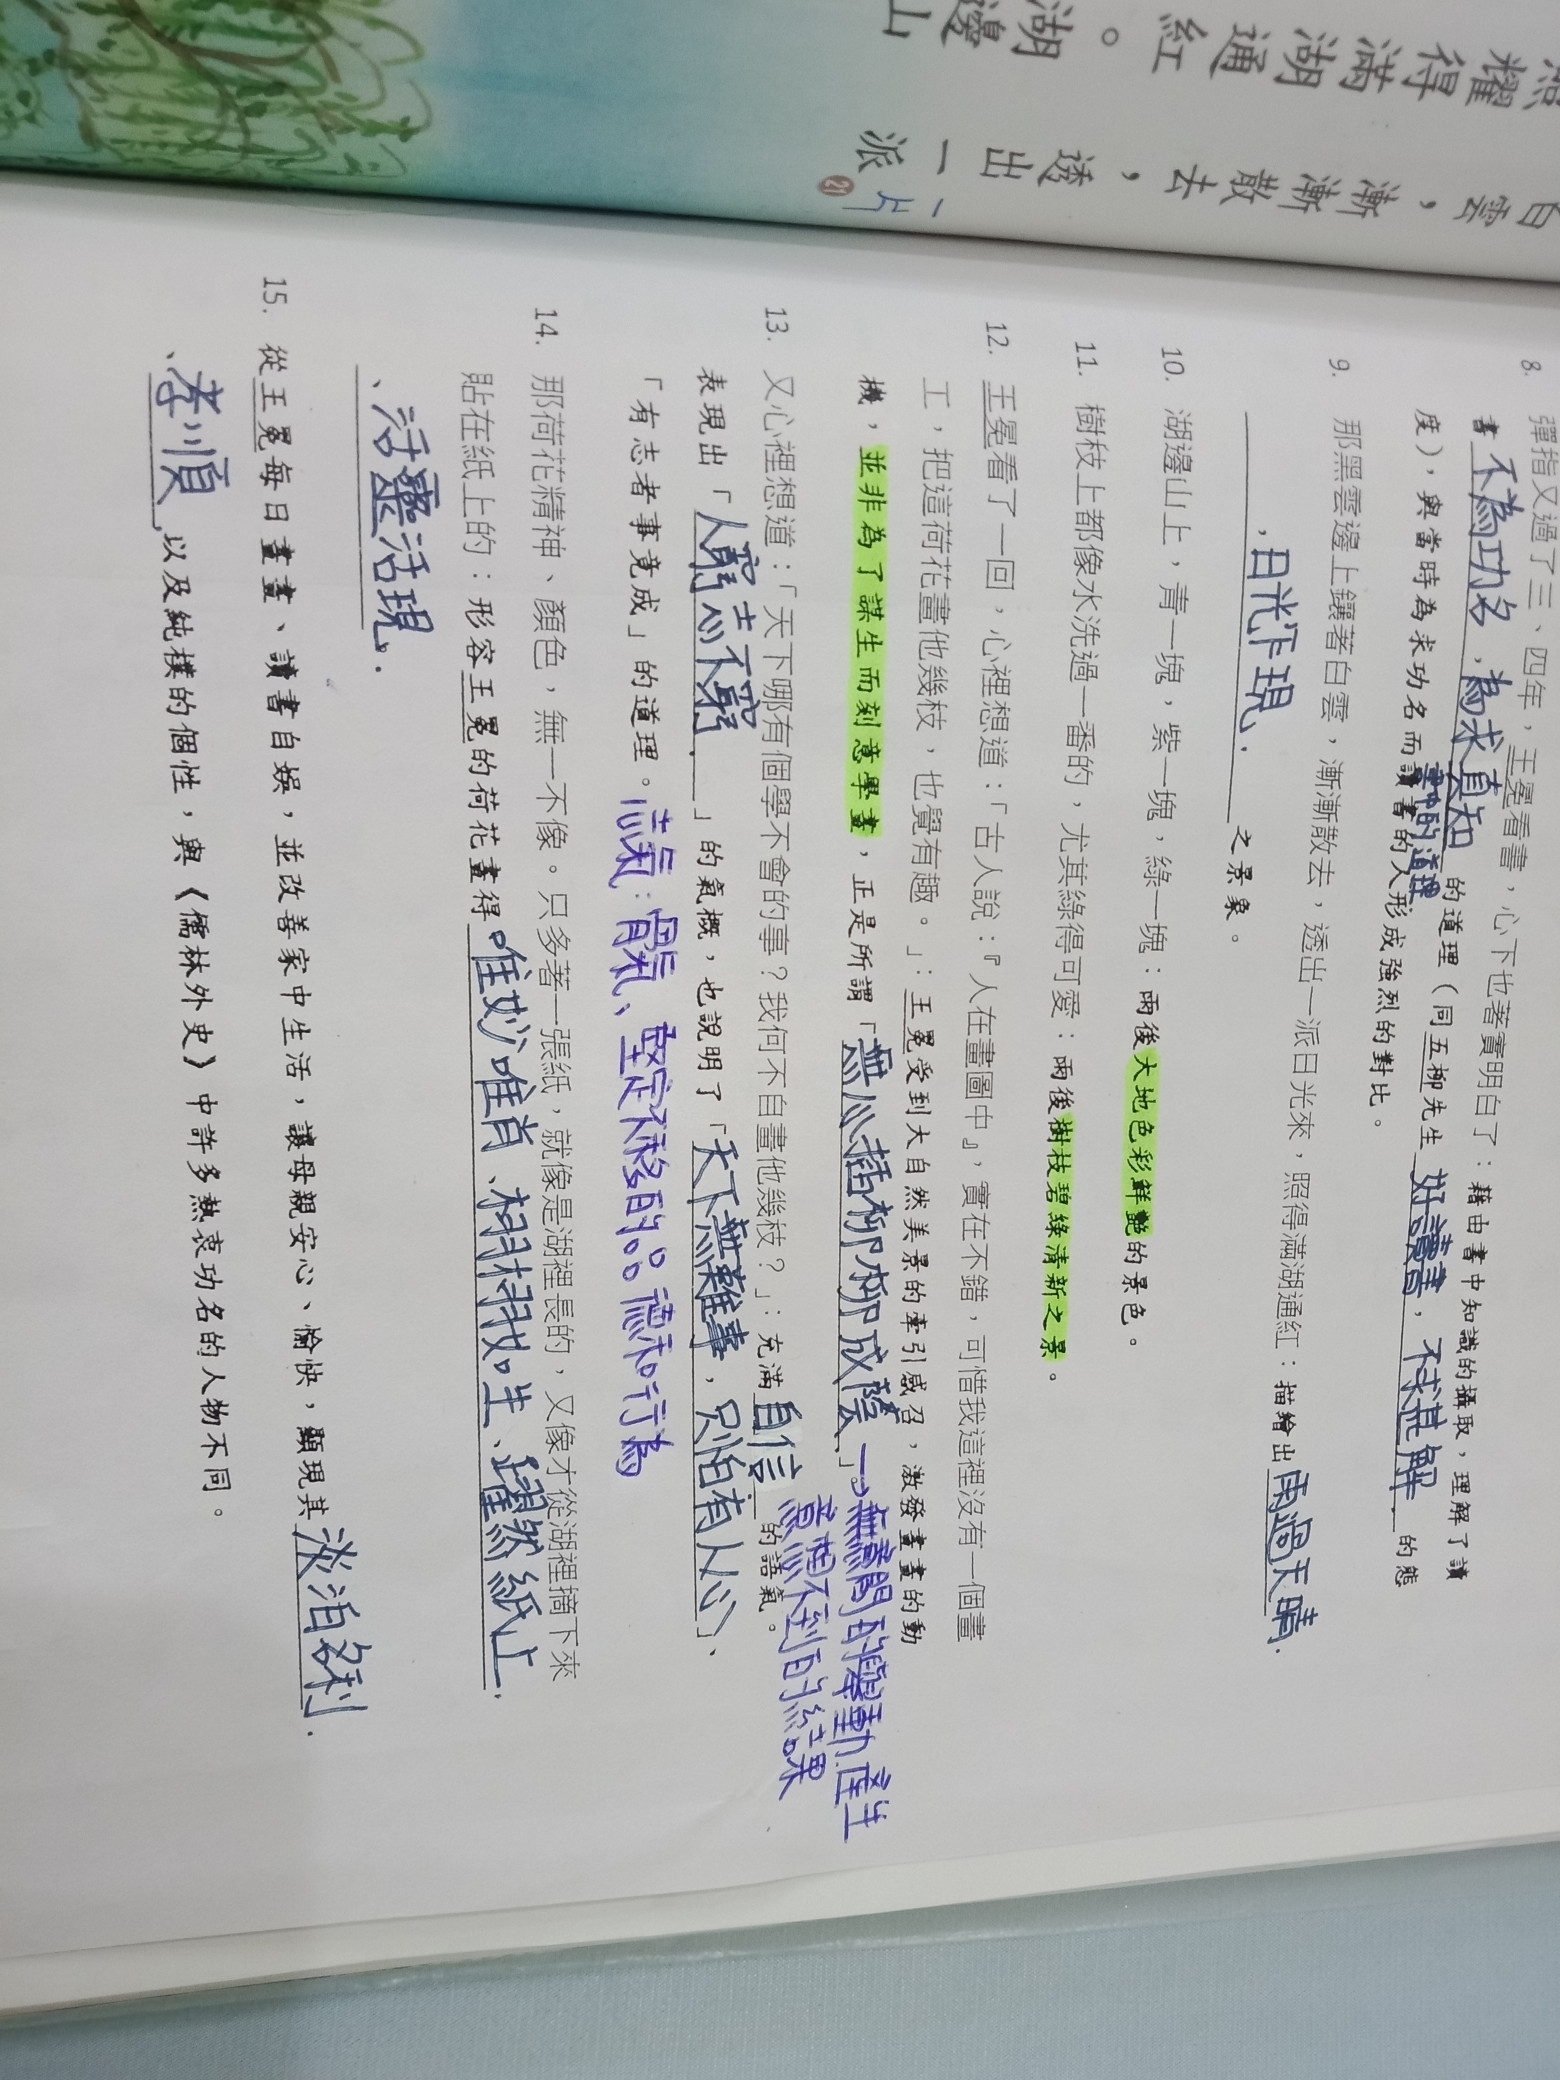 照耀得滿湖通紅。湖邊山
白雲，漸漸散去，透出一派
一片
21
8. 彈指又過了三、四年，王冕看書，心下也著實明白了：藉由書中知識的攝取，理解了讀
書不為功名，為求真知的道理（同五柳先生好讀書，不求甚解的態
書中的道理
度），與當時為求功名而讀書的人形成強烈的對比。
9. 那黑雲邊上鑲著白雲，漸漸散去，透出一派日光來，照得滿湖通紅：描繪出雨過天晴
，日光乍現之景象。
10. 湖邊山上，青一塊，紫一塊，綠一塊：雨後大地色彩鮮艷的景色。
11. 樹枝上都像水洗過一番的，尤其綠得可愛：雨後樹枝碧綠清新之景。
12. 王冕看了一回，心裡想道：「古人說：『人在畫圖中』，實在不錯，可惜我這裡沒有一個畫
工，把這荷花畫他幾枝，也覺有趣。」：王冕受到大自然美景的牽引感召，激發畫畫的動
機，並非為了謀生而刻意學畫，正是所謂「無心插柳柳成蔭」。→無意間的舉動產生
意想不到的結果
13. 又心裡想道：「天下哪有個學不會的事？我何不自畫他幾枝？」：充滿自信的語氣。
表現出「人窮志不窮」的氣概，也說明了「天下無難事，只怕有心人」、
「有志者事竟成」的道理。志氣：骨氣、堅定不移的品德和行為
14. 那荷花精神、顏色，無一不像。只多著一張紙，就像是湖裡長的，又像才從湖裡摘下來
貼在紙上的：形容王冕的荷花畫得唯妙唯肖、栩栩如生、躍然紙上
、活靈活現
15. 從王冕每日畫畫、讀書自娛，並改善家中生活，讓母親安心、愉快，顯現其淡泊名利
、孝順，以及純樸的個性，與《儒林外史》中許多熱衷功名的人物不同。